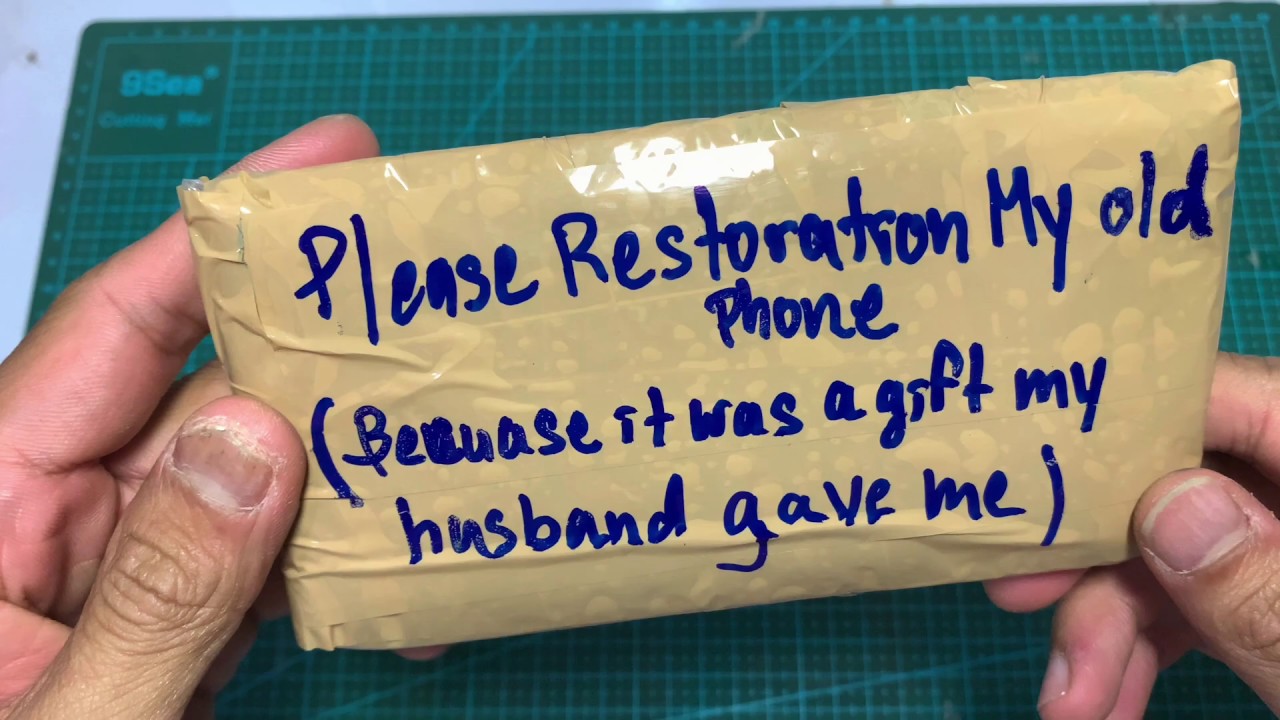 9Sea®
Cutting Mat
Please Restoration My old
Phone
(Becuase it was a gift my
husband gave me)